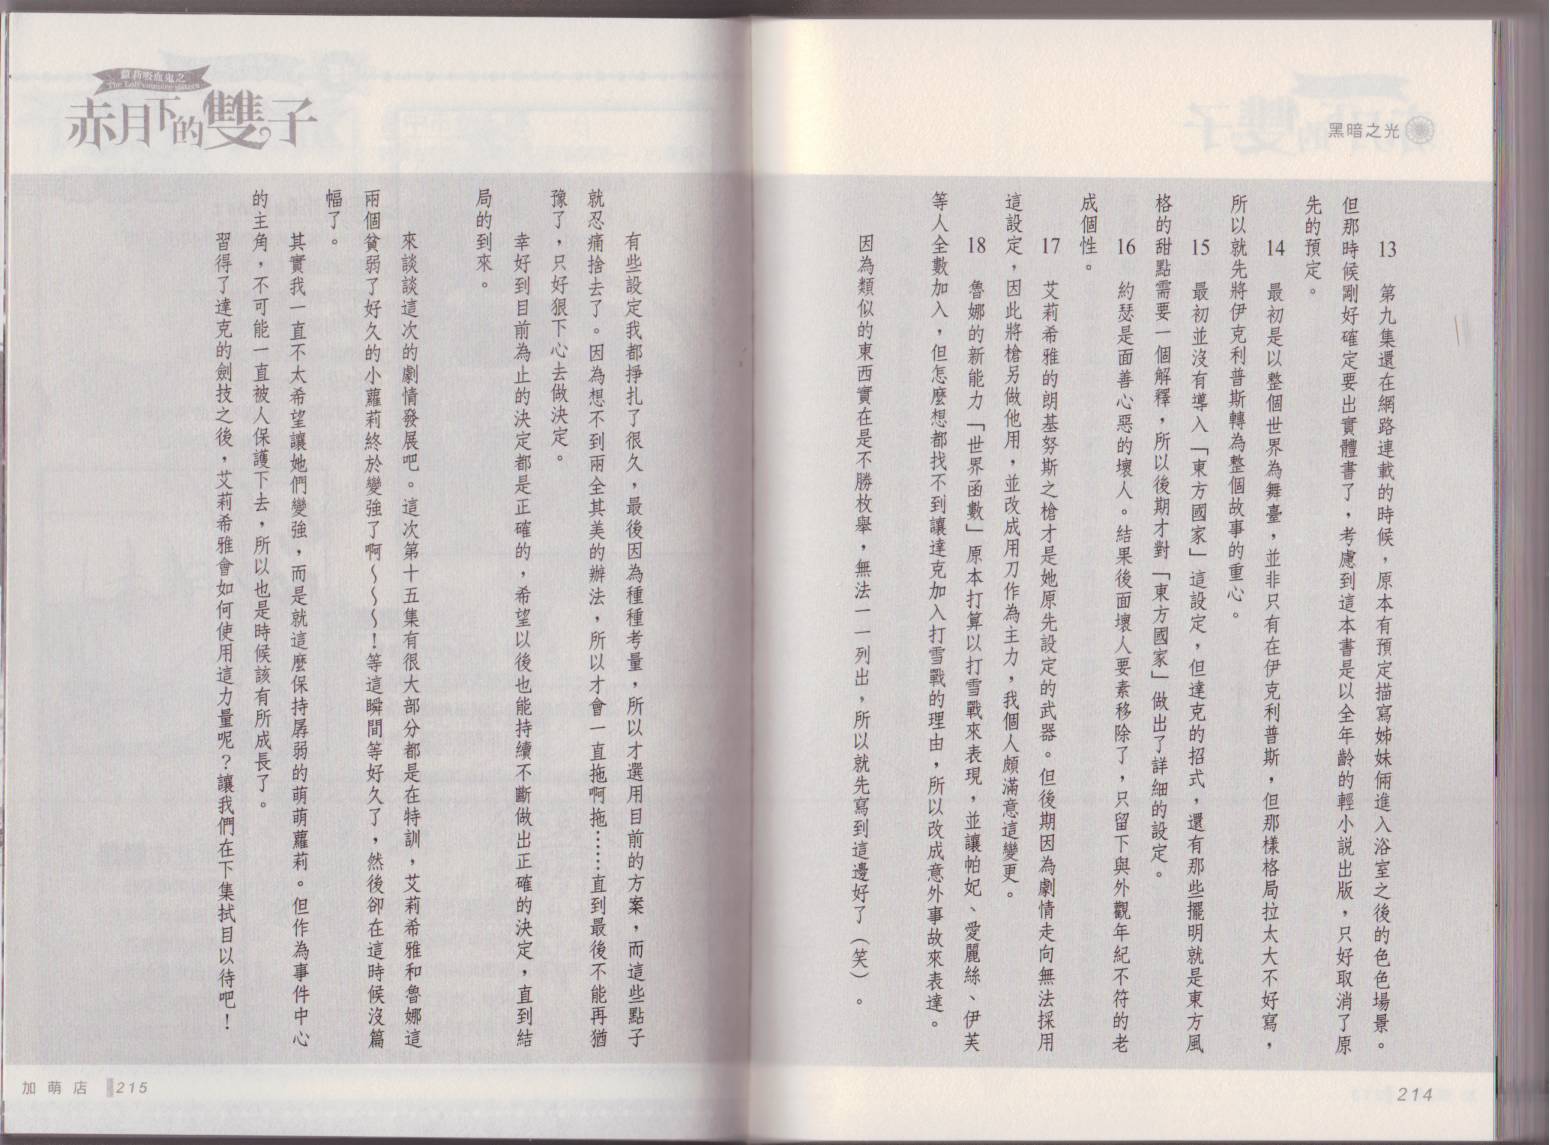 黑暗之光
13　第九集還在網路連載的時候，原本有預定描寫姊妹倆進入浴室之後的色色場景。
但那時候剛好確定要出實體書了，考慮到這本書是以全年齡的輕小說出版，只好取消了原
先的預定。
14　最初是以整個世界為舞臺，並非只有在伊克利普斯，但那樣格局拉太大不好寫，
所以就先將伊克利普斯轉為整個故事的重心。
15　最初並沒有導入「東方國家」這設定，但達克的招式，還有那些擺明就是東方風
格的甜點需要一個解釋，所以後期才對「東方國家」做出了詳細的設定。
16　約瑟是面善心惡的壞人。結果後面壞人要素移除了，只留下與外觀年紀不符的老
成個性。
17　艾莉希雅的朗基努斯之槍才是她原先設定的武器。但後期因為劇情走向無法採用
這設定，因此將槍另做他用，並改成用刀作為主力，我個人頗滿意這變更。
18　魯娜的新能力「世界函數」原本打算以打雪戰來表現，並讓帕妃、愛麗絲、伊芙
等人全數加入，但怎麼想都找不到讓達克加入打雪戰的理由，所以改成意外事故來表達。
因為類似的東西實在是不勝枚舉，無法一一列出，所以就先寫到這邊好了（笑）。
214
蘿莉吸血鬼之
The Loli vampire sisters
赤月下的雙子
有些設定我都掙扎了很久，最後因為種種考量，所以才選用目前的方案，而這些點子
就忍痛捨去了。因為想不到兩全其美的辦法，所以才會一直拖啊拖……直到最後不能再猶
豫了，只好狠下心去做決定。
幸好到目前為止的決定都是正確的，希望以後也能持續不斷做出正確的決定，直到結
局的到來。
來談談這次的劇情發展吧。這次第十五集有很大部分都是在特訓，艾莉希雅和魯娜這
兩個貧弱了好久的小蘿莉終於變強了啊～～～！等這瞬間等好久了，然後卻在這時候沒篇
幅了。
其實我一直不太希望讓她們變強，而是就這麼保持孱弱的萌萌蘿莉。但作為事件中心
的主角，不可能一直被人保護下去，所以也是時候該有所成長了。
習得了達克的劍技之後，艾莉希雅會如何使用這力量呢？讓我們在下集拭目以待吧！
加萌店 215